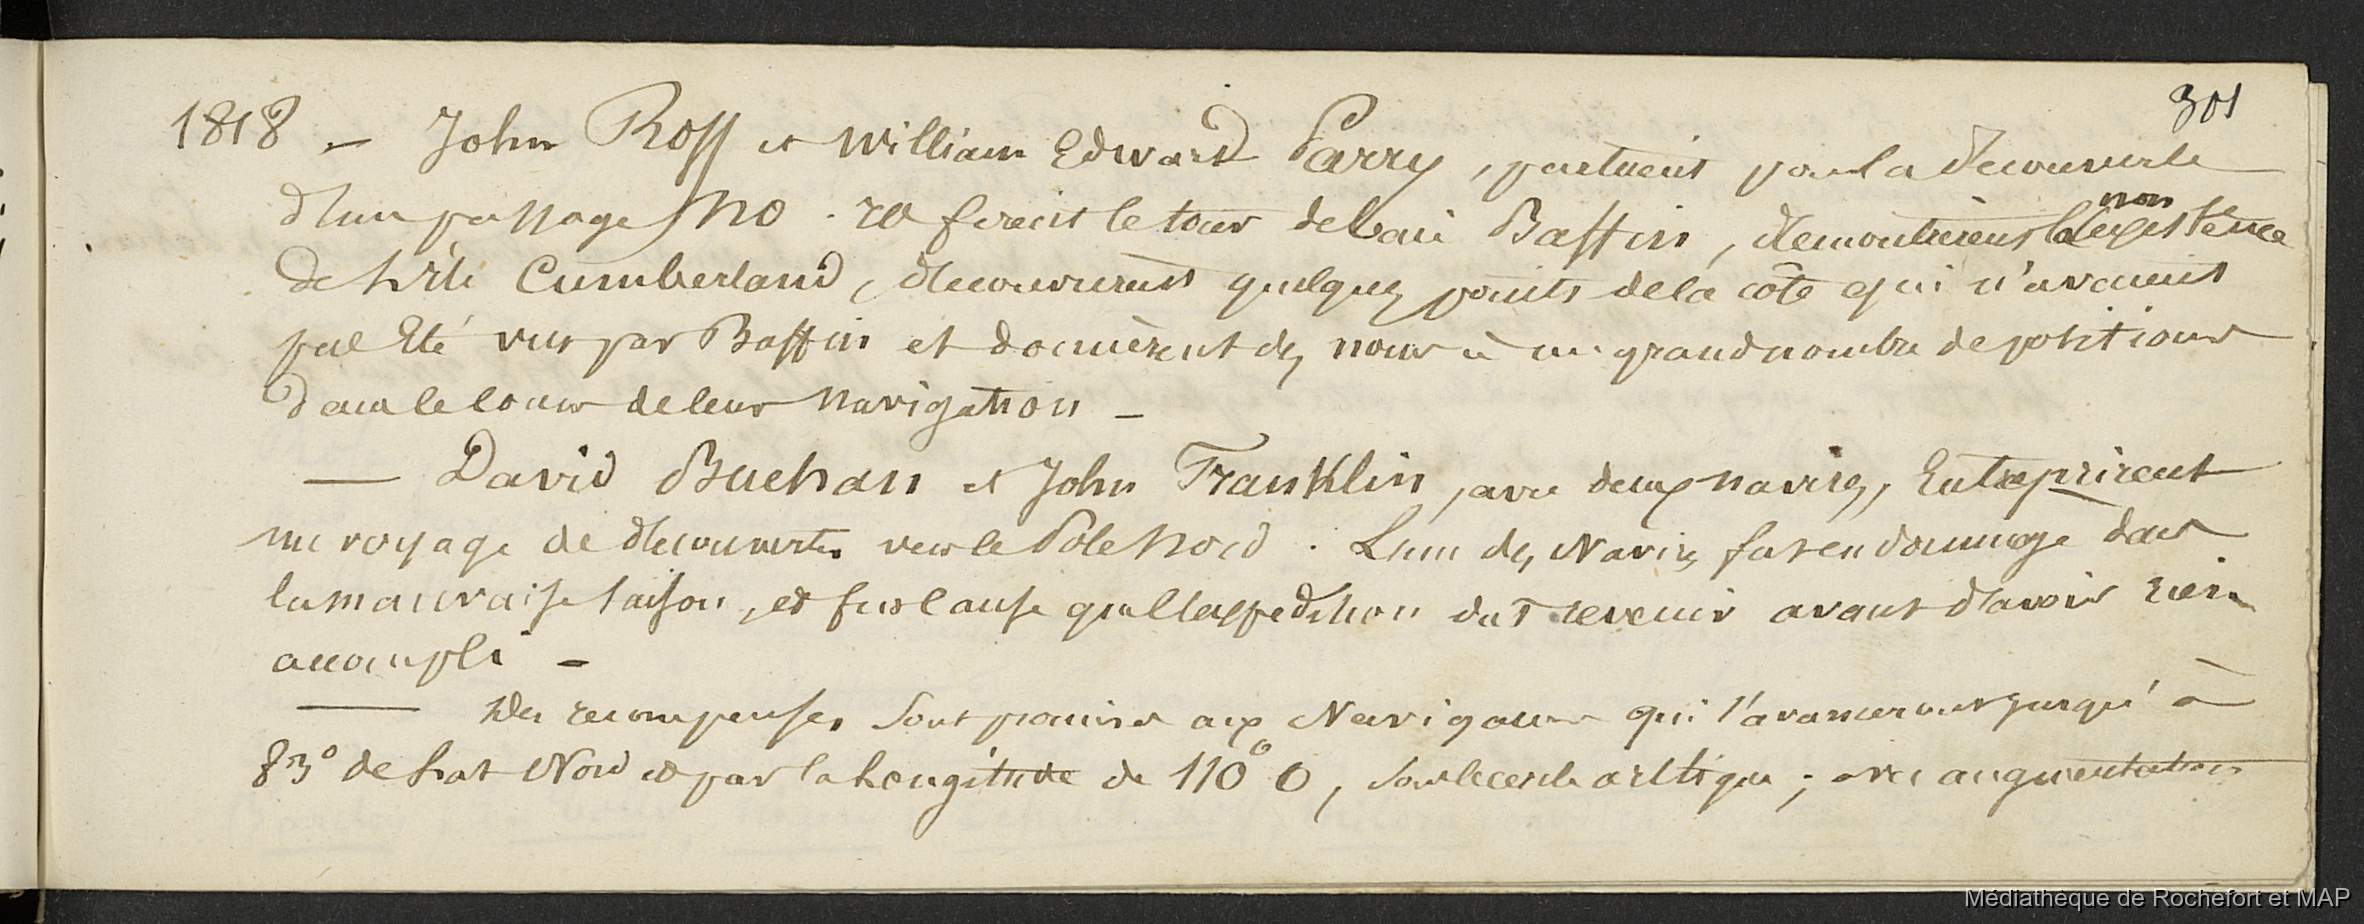 301
1818 - John Ross et William Edward Parry, partirent pour la découverte
d'un passage N O. Ils firent le tour de baie Baffin, démontrèrent la non existence
de l'île Cumberland, découvrirent quelques points de la côte qui n'avaient
pas été vus par Baffin et donnèrent des noms à un grand nombre de positions
dans le cours de leur navigation -
— David Buchan et John Franklin, avec deux navires, Entreprirent
un voyage de découvertes vers le Pole Nord. L'un des Navires fut endommagé dans
la mauvaise saison, et fut cause que l'expédition dut revenir avant d'avoir rien
accompli -
— Des recompenses sont promises aux Navigateurs qui s'avanceront jusqu'à
83° de Lat Nord et par la Longitude de 110° O, sous le cercle arctique; avec augmentation
Médiathèque de Rochefort et MAP